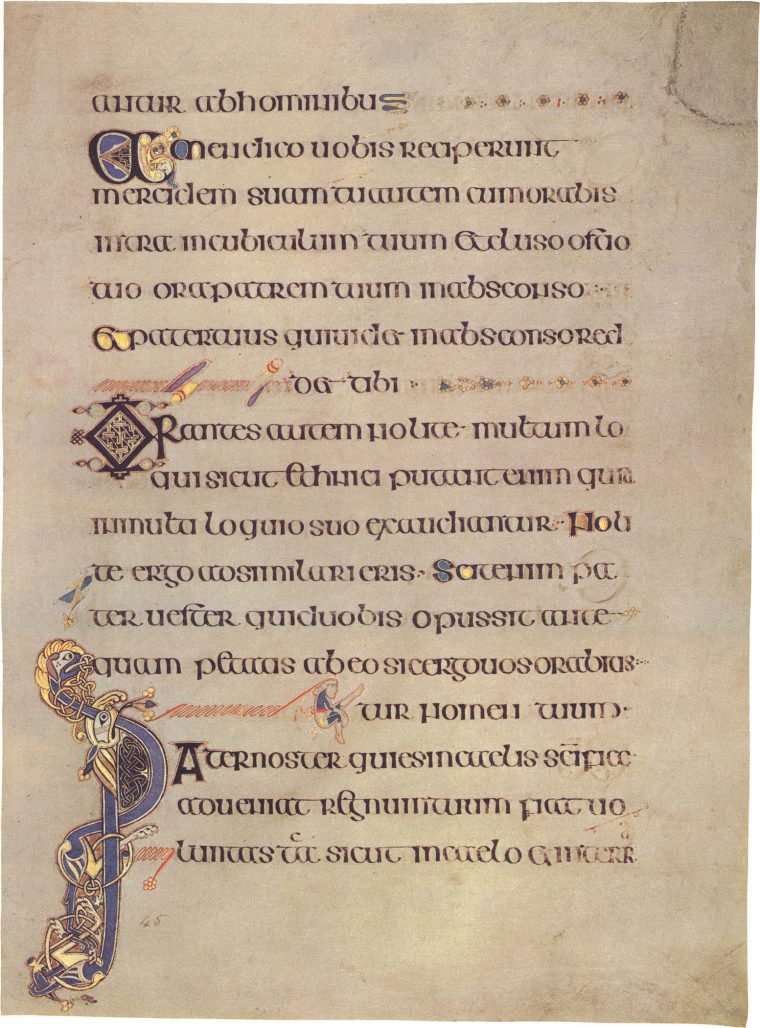 antur abhominibus
Amendico uobis reciperunt
mercidem suam tuautem cumorabis
intra incubiculum tuum etcluso ostio
tuo orapatrem tuum inabsconso
Etpatertuus quiuidet inabsconso red
det tibi
Orantes autem nolite multum lo
qui sicut ethnici putantenim quia
inmulto loquio suo exaudiantur Noli
te ergo adsimilari eris Scitenim pa
ter uester quiduobis opussit ante
quam petatis abeo sicergouosorabitis
tur nomen tuum
Paternoster quiesincaelis scifice
adueniat regnumtuum fiat uo
luntas tua sicut incaelo etinterra
45